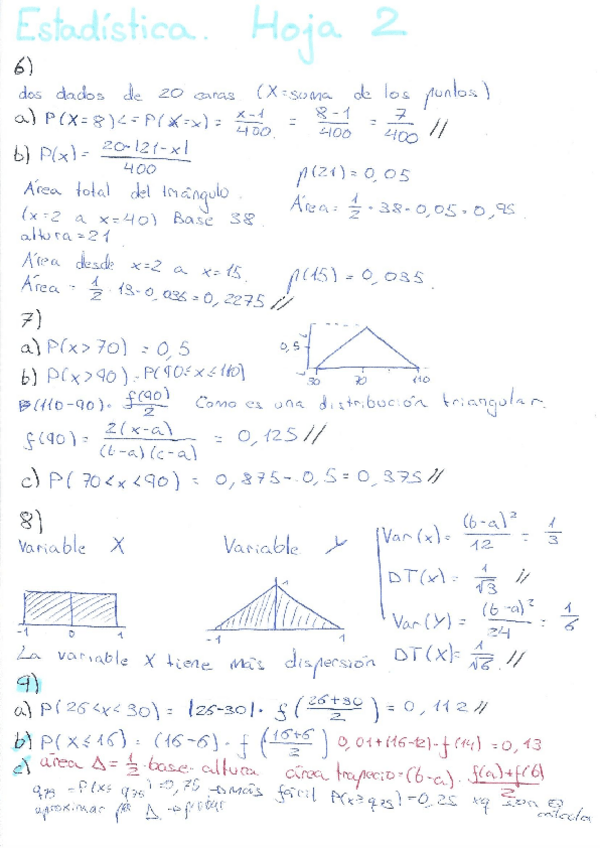 Estadística. Hoja 2
6)
dos dados de 20 caras (X=suma de los puntos)
a) P(X=8) <= P(X=x) = x-1/400 = 8-1/400 = 7/400 //
b) P(x) = 20-|21-x|/400
p(21)=0,05
Área total del triángulo.
Área = 1/2 · 38 · 0,05 = 0,95
(x=2 a x=40) Base 38.
altura=21
Área desde x=2 a x=15.
p(15)=0,035.
Área = 1/2 · 13 · 0,035=0,2275 //
7)
a) P(x>70) = 0,5
0,5
30 70 110
b) P(x>90) = P(90≤x≤110)
(110-90) · f(90)/2 Como es una distribución triangular.
f(90) = 2(x-a)/(b-a)(c-a) = 0,125 //
c) P(70<x<90) = 0,875-0,5=0,375 //
8)
Variable X
Variable Y
Var(x)= (b-a)²/12 = 1/3
DT(x)= 1/√3 //
Var(Y)= (b-a)²/24 = 1/6
DT(X)= 1/√6 //
-1 0 1
1
-1 1
La variable X tiene más dispersión
9)
a) P(26<x<30) = |26-30| · f(26+30/2) = 0,112 //
b) P(X≤16) = (16-6) · f(16+6/2) 0,01+(16-12)·f(14) =0,13
c) área Δ = 1/2 · base · altura área trapecio=(b-a) · f(a)+f(b)/2
q75 = P(x≤q75)=0,75 → más fácil P(x≥q75)=0,25 xq son
aproximar por Δ